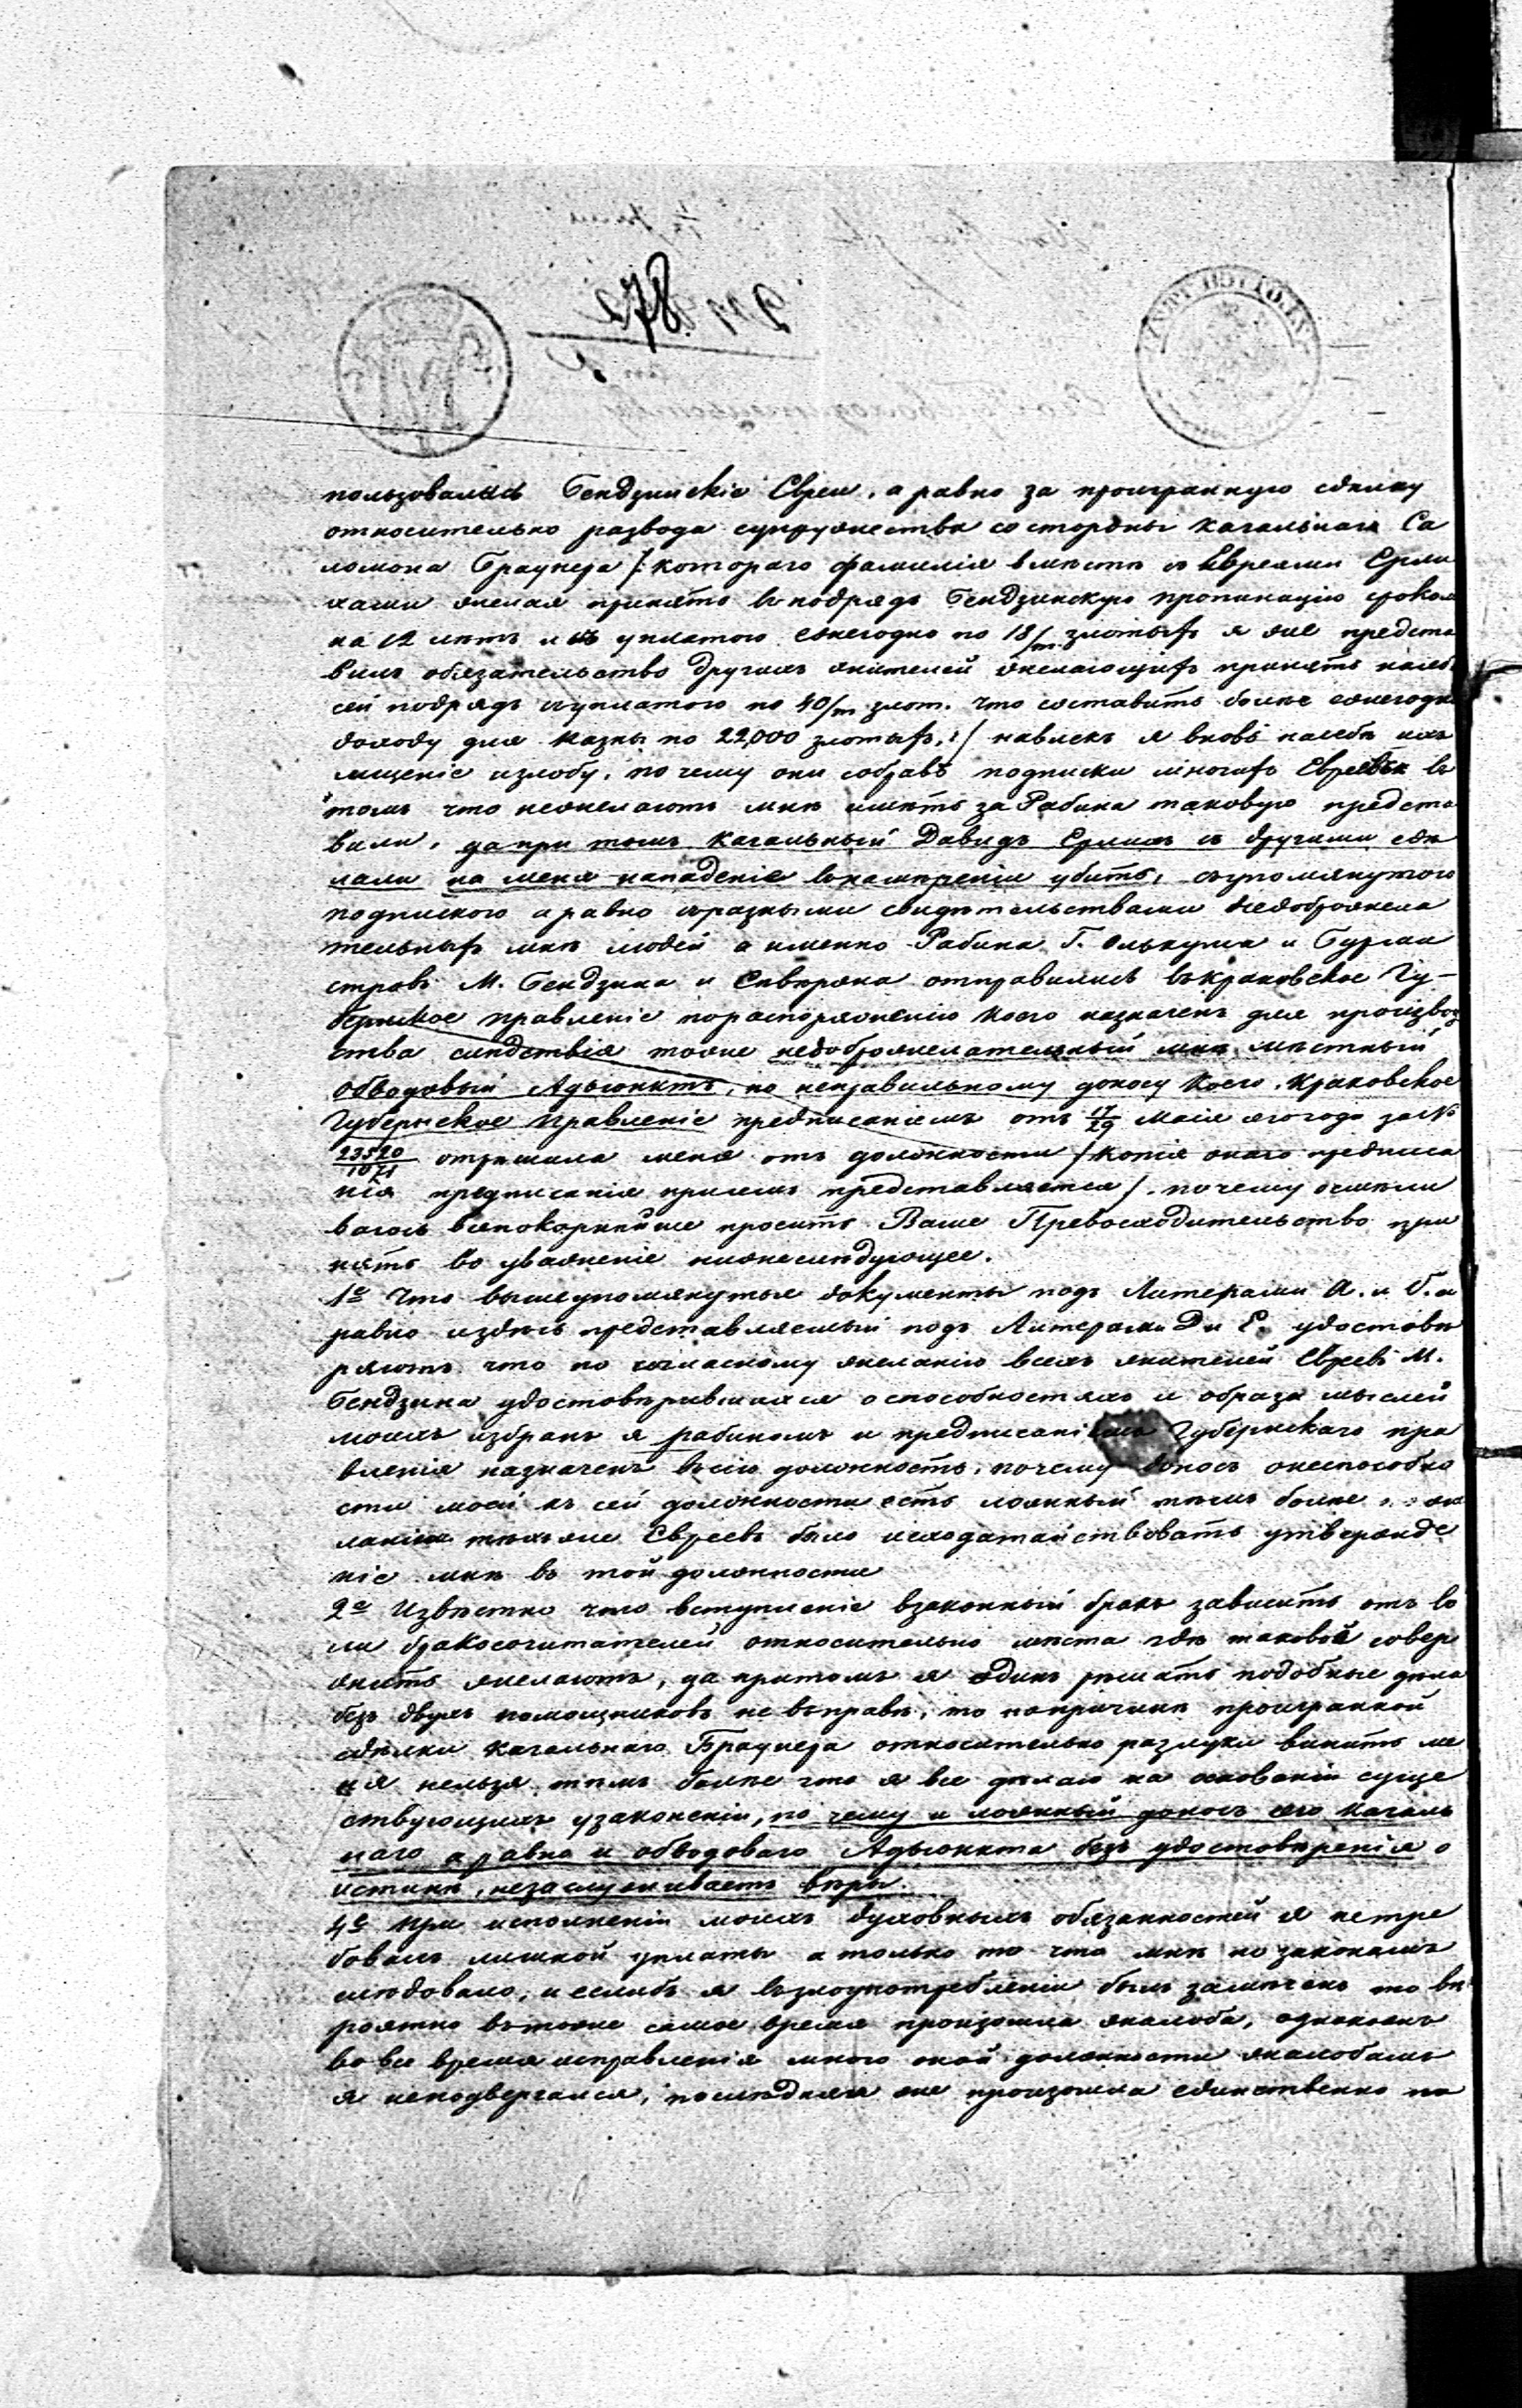 872
пользовались Бендзинскіе Евреи, а равно за проигранную сдѣлку
относительно развода супружества со стороны Кагальнаго Са
ломона Браунера /: котораго фамилія вмѣстѣ съ Евреями Ерли
хами желая принять въ подрядъ Бендзинскую пропинацію срокомъ
на 12 лѣтъ съ уплатою ежегодно по 18/m злотыхъ я же предста
вилъ обязательство другихъ жителей желающихъ принять на себя
сей подрядъ съ уплатою по 40/m злот. что составитъ болѣе ежегодно
доходу для Казны по 22,000 злотыхъ, :/ навлекъ я вновь на себя ихъ
мщеніе и злобу, по чему они собравъ подписки многихъ Евреевъ въ
томъ что нежелаютъ мнѣ имѣть за Рабина таковую предста
вили, да при томъ Кагальный Давидъ Ерлихъ съ другими сдѣ
лали на меня нападеніе въ намѣреніи убить, съ упомянутою
подпискою а равно съ разными свидѣтельствами недоброжела
тельныхъ мнѣ людей а именно Рабина Г. Олькуша и Бурми
стровъ М. Бендзина и Сивѣржа отправились въ Краковское Гу-
бернское Правленіе по распоряженію коего назначенъ для производ
ства слѣдствія тоже недоброжелательный мнѣ мѣстный
Обводовый Адъюнктъ, по неправильному доносу коего, Краковское
Губернское Правленіе предписаніемъ отъ 17/29 Маія сего года за №
23520/1071 отрѣшила меня отъ должности /: копія онаго предписа
нія предписанія присемъ представляется /. почему осмѣли
ваюсь всепокорнѣйше просить Ваше Превосходительство при
нять во уваженіе нижеслѣдующее.
1е Что вышеупомянутые документы подъ Литерами А. и Б. а
равно и здѣсь представляемый подъ Литерами Д и Е. удостовѣ
ряютъ что по согласному желанію всехъ жителей Евреевъ М.
Бендзина удостовѣрившихся о способностяхъ и образа мыслей
моихъ избранъ я рабиномъ и предписаніемъ Губернскаго пра
вленія назначенъ въ сію должность, почему доносъ о неспособно
сти моей къ сей должности есть ложный тѣмъ болѣе же
ланіемъ тѣхъ же Евреевъ было исходатайствовать утвержде
ніе мнѣ въ той должности
2е Извѣстно что вступленіе в законный бракъ зависитъ отъ во
ли бракосочитателей, относительно мѣста гдѣ таковой совер
шить желаютъ, да притомъ я одинъ рѣшать подобные дѣла
безъ двухъ помощниковъ не въ правѣ, то по причинѣ проигранной
сдѣлки Кагальнаго Браунера относительно разлуки винить ме
ня нельзя тѣмъ болѣе что я все дѣлаю на основаніи суще
ствующихъ узаконеніи, по чему и ложный доносъ сего Кагаль
наго а равно и обводоваго Адъюнкта безъ удостовѣренія о
истинѣ, незаслуживаетъ вѣры.
4е При исполненіи моихъ духовныхъ обязанностей я нетре
бовалъ лишной уплаты а только то что мнѣ по законамъ
слѣдовало, и еслибъ я въ злоупотребленіи былъ замѣченъ то вѣ
роятно въ тоже самое время произошла жалоба, однакожъ
во все время исправленія мною оной должности жалобамъ
я неподвергался, послѣдняя же произошла единственно по